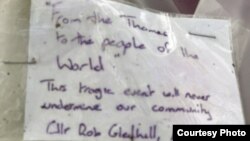 "F
From the Thames
to the people of the
World"
This tragic event will never
undermine our community
Cllr Rob Gledhill,
Courtesy Photo